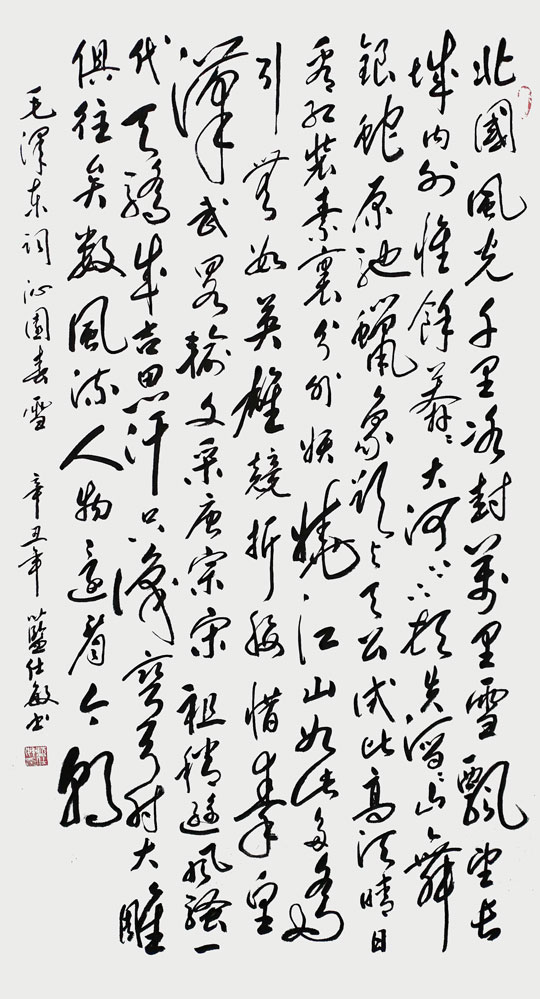 北國風光千里冰封萬里雪飄望長
城内外惟餘莽莽大河上下頓失滔滔山舞
銀蛇原馳蠟象欲与天公試比高須晴日
看紅裝素裹分外妖嬈江山如此多嬌
引無数英雄競折腰惜秦皇
漢武略輸文采唐宗宋祖稍遜風騷一
代天驕成吉思汗只識彎弓射大雕
俱往矣数風流人物還看今朝
毛澤东詞沁園春雪 辛丑年 藍仕敏书